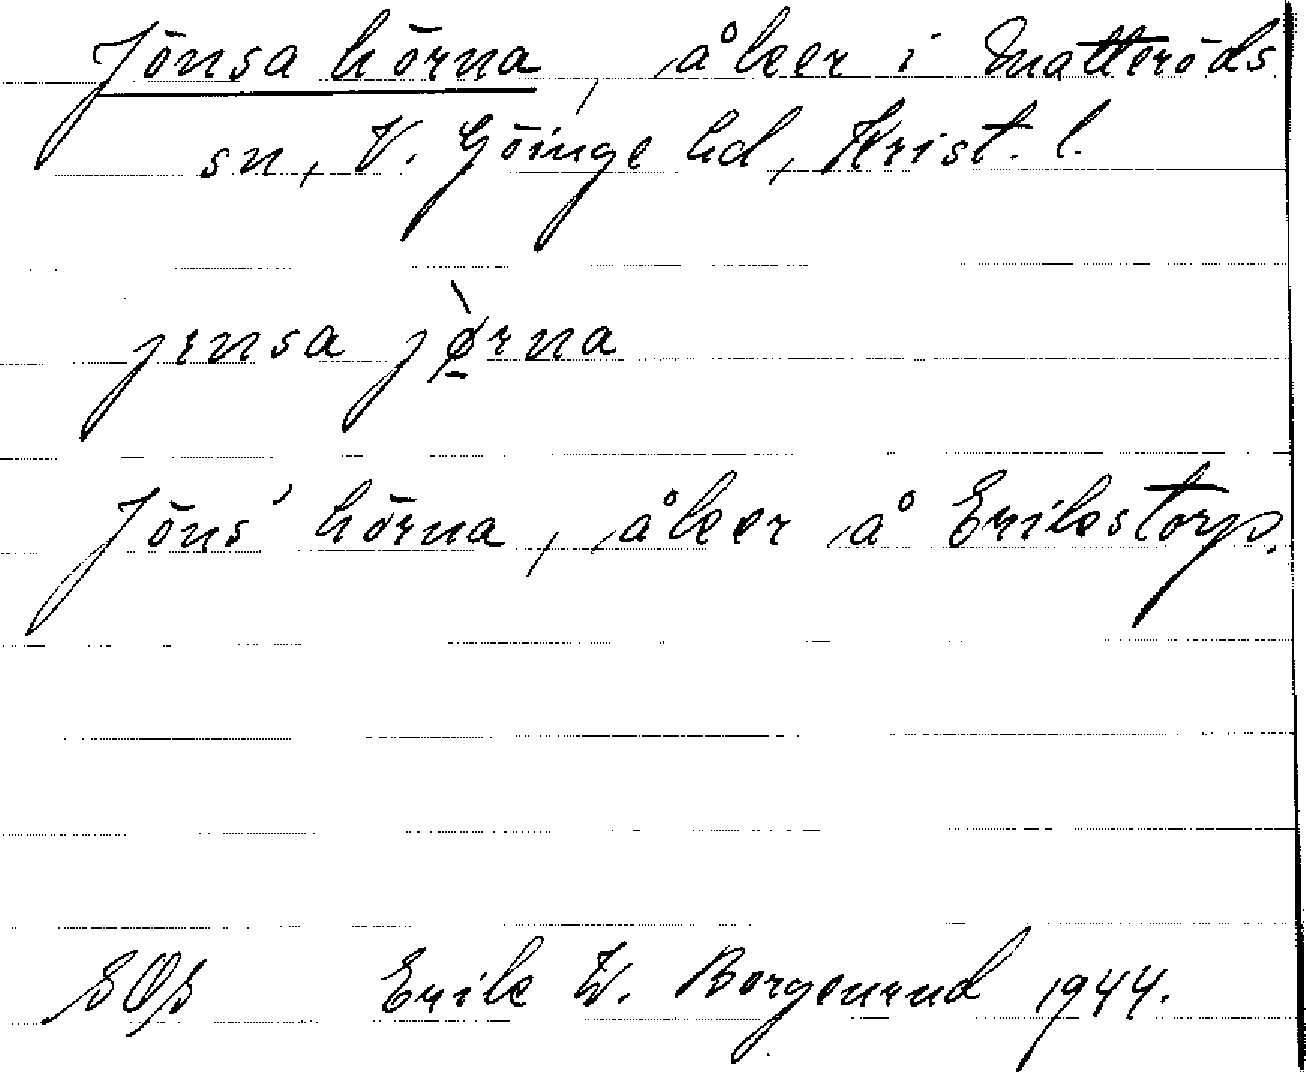 Jönsa hörna, åker i Matteröds
sn, V. Göinge hd, Krist. l.
jensa jø̠̀rna
Jöns' hörna, åker å Erikstorp.
Erik W. Borgenund 1944.